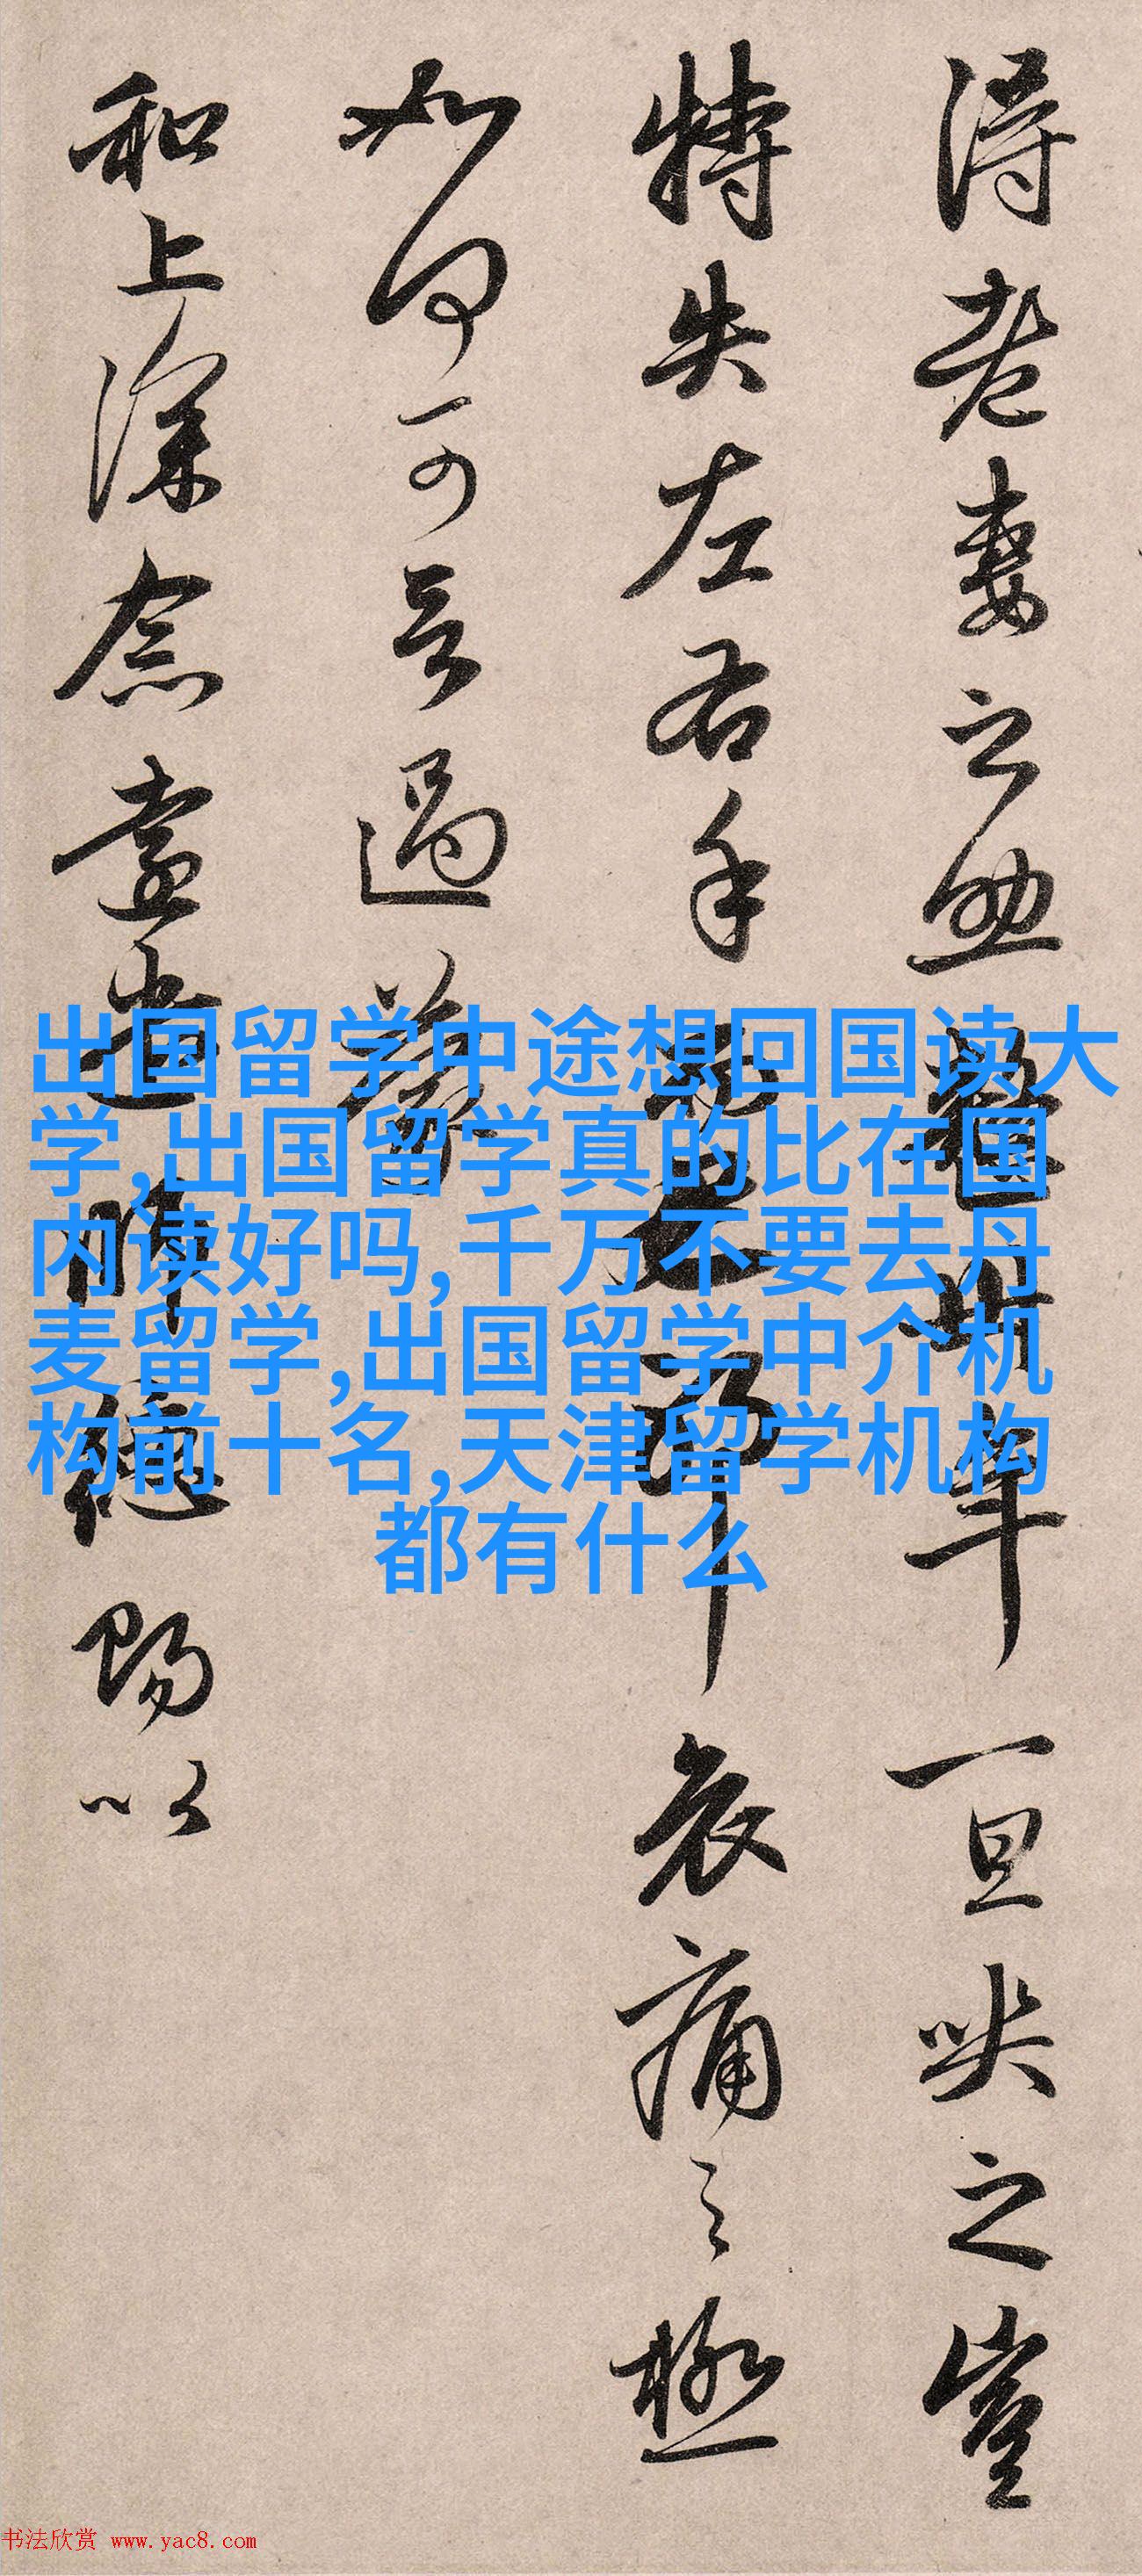 得老妻之助整卅年一旦哭之豈
特失左右手而已耶哀痛之極
如何可言過蒙
和上深念遠遣師德賜以
出国留学中途想回国读大
学,出国留学真的比在国
内读好吗,千万不要去丹
麦留学,出国留学中介机
构前十名,天津留学机构
都有什么
书法欣赏 www.yac8.com